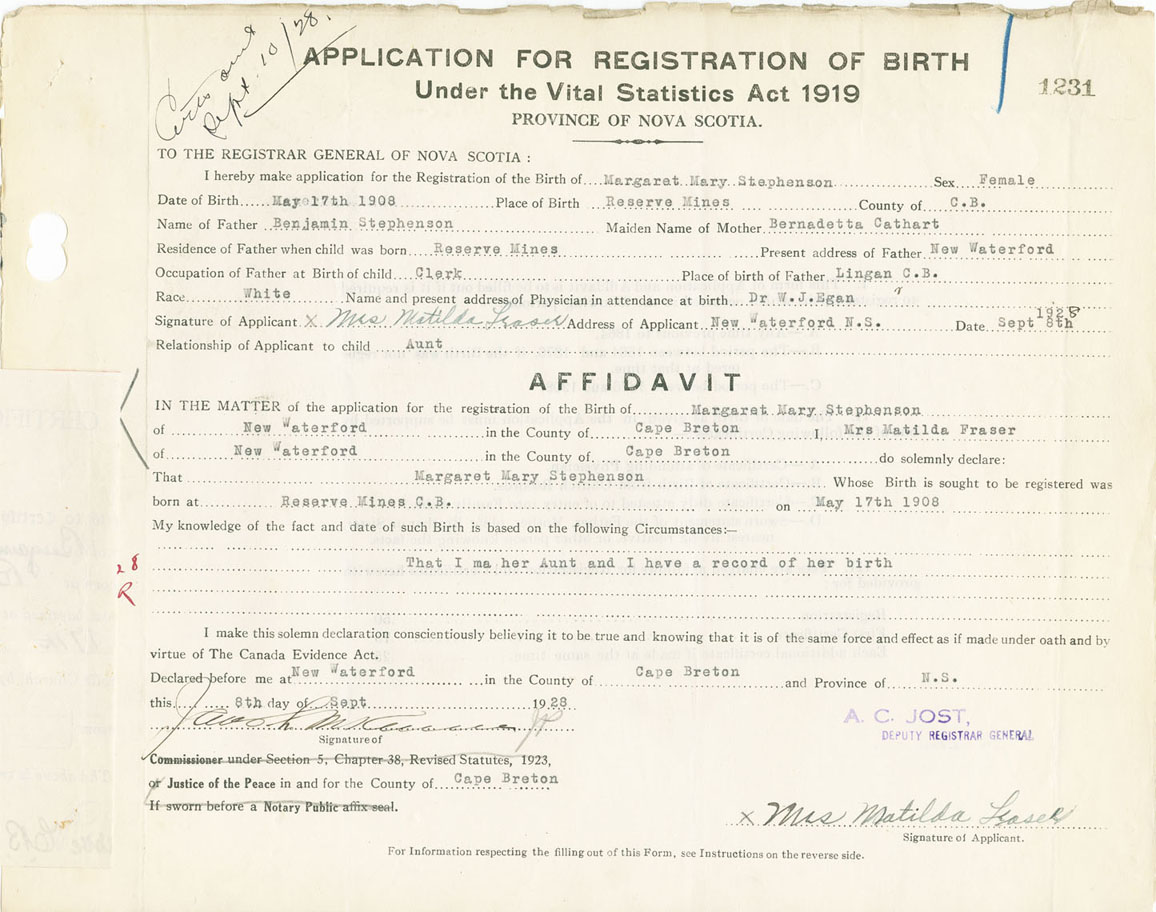 Sept. 10/28.
APPLICATION FOR REGISTRATION OF BIRTH
Under the Vital Statistics Act 1919
1231
PROVINCE OF NOVA SCOTIA.
TO THE REGISTRAR GENERAL OF NOVA SCOTIA :
I hereby make application for the Registration of the Birth of Margaret Mary Stephenson Sex Female
Date of Birth May 17th 1908 Place of Birth Reserve Mines County of C.B.
Name of Father Benjamin Stephenson Maiden Name of Mother Bernadetta Cathart
Residence of Father when child was born Reserve Mines Present address of Father New Waterford
Occupation of Father at Birth of child Clerk Place of birth of Father Lingan C.B.
Race White Name and present address of Physician in attendance at birth Dr W.J.Egan
Signature of Applicant x Mrs Matilda Fraser Address of Applicant New Waterford N.S. Date Sept 8th 1928
Relationship of Applicant to child Aunt
AFFIDAVIT
IN THE MATTER of the application for the registration of the Birth of Margaret Mary Stephenson
of New Waterford in the County of Cape Breton I, Mrs Matilda Fraser
of New Waterford in the County of Cape Breton do solemnly declare:
That Margaret Mary Stephenson Whose Birth is sought to be registered was
born at Reserve Mines C.B. on May 17th 1908
My knowledge of the fact and date of such Birth is based on the following Circumstances:—
That I ma her Aunt and I have a record of her birth
28
R
I make this solemn declaration conscientiously believing it to be true and knowing that it is of the same force and effect as if made under oath and by
virtue of The Canada Evidence Act.
Declared before me at New Waterford in the County of Cape Breton and Province of N.S.
this 8th day of Sept 1928
JP
A. C. JOST,
DEPUTY REGISTRAR GENERAL
Signature of
Commissioner under Section 5, Chapter 38, Revised Statutes, 1923,
or Justice of the Peace in and for the County of Cape Breton
If sworn before a Notary Public affix seal.
x Mrs Matilda Fraser
Signature of Applicant.
For Information respecting the filling out of this Form, see Instructions on the reverse side.